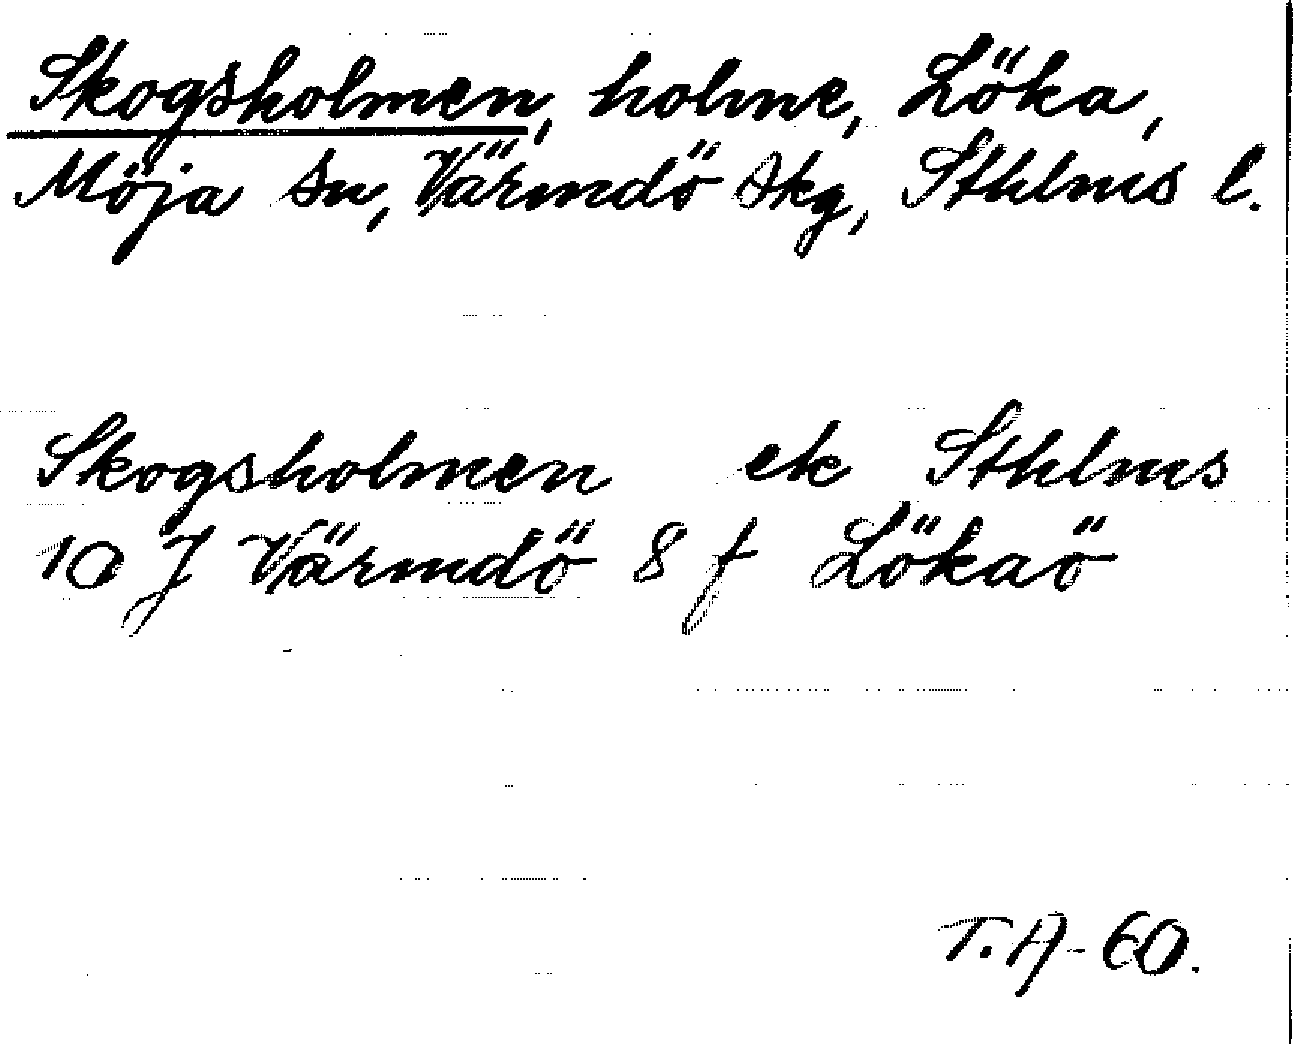 Skogsholmen, holme, Löka,
Möja sn, Värmdö skg, Sthlms l.
Skogsholmen ek Sthlms
10 J Värmdö 8 f Lökaö
T.A-60.